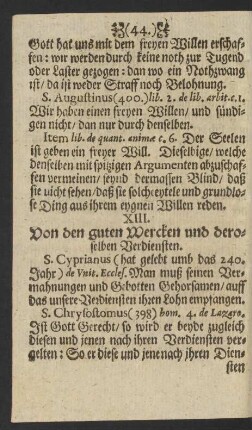 (44.)
Gott hat uns mit dem freyen Willen erschaf-
fen: wir werden durch keine noth zur Tugend
oder Laster gezogen: dan wo ein Nothzwang
ist/ da ist weder Straff noch Belohnung.
S. Augustinus (400.) lib. 2. de lib. arbit. c. 1.
Wir haben einen freyen Willen/ und sündi-
gen nicht/ dan nur durch denselben.
Item lib. de quant. animæ c. 6. Der Seelen
ist geben ein freyer Will. Dieselbige/ welche
denselben mit spitzigen Argumenten abzuschaf-
fen vermeinen/ seynd dermassen Blind/ daß
sie nicht sehen/ daß sie solche eytele und grundlo-
se Ding aus ihrem eygnen Willen reden.
XIII.
Von den guten Wercken und dero-
selben Verdiensten.
S. Cyprianus (hat gelebt umb das 240.
Jahr) de Vnit. Eccles. Man muß seinen Ver-
mahnungen und Gebotten Gehorsamen/ auff
das unsere Verdiensten ihren Lohn empfangen.
S. Chrysostomus (398) hom. 4. de Lazaro.
Ist Gott Gerecht/ so wird er beyde zugleich
diesen und jenen nach ihren Verdiensten ver-
gelten: So er diese und jene nach ihren Dien-
sten